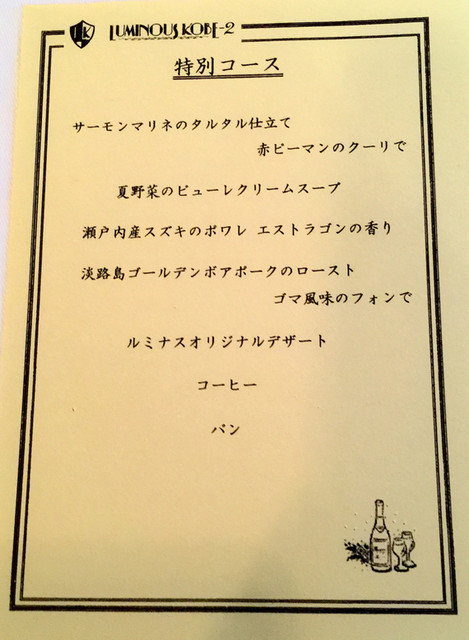 LK
LUMINOUS KOBE-2
特別コース
サーモンマリネのタルタル仕立て
赤ピーマンのクーリで
夏野菜のピューレクリームスープ
瀬戸内産スズキのポワレ エストラゴンの香り
淡路島ゴールデンボアポークのロースト
ゴマ風味のフォンで
ルミナスオリジナルデザート
コーヒー
パン